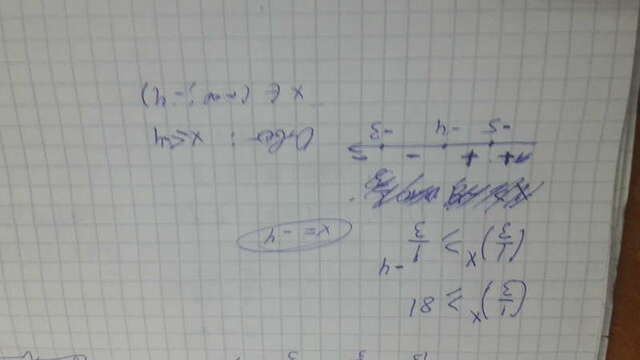 (1/3)^x ≥ 81
(1/3)^x ≥ 1/3^-4
x = -4
+ + -
-5 -4 -3
Ответ: x ≤ 4
x ∈ (-∞; -4)